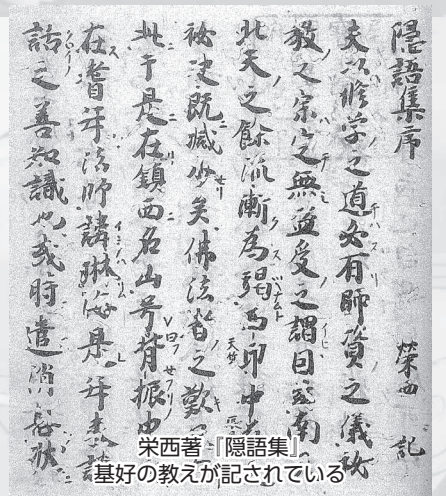 隠語集序 栄西記
夫以修学之道必有師資之儀秘
教之宗無受之謂因南
北天之餘流漸為竭中
秘决既減少矣佛法皆之歎
此于是在鎮西名山号背振山
在耆年法師諱琳海是年来談
話之善知識也或時遣消息状
栄西著『隠語集』
基好の教えが記されている